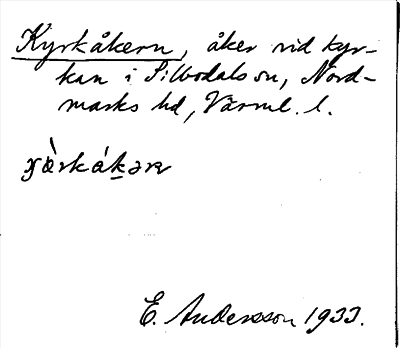 Kyrkåkern, åker vid kyr-
kan i Silbodals sn, Nord-
marks hd, Värml. l.
E. Andersson 1933.